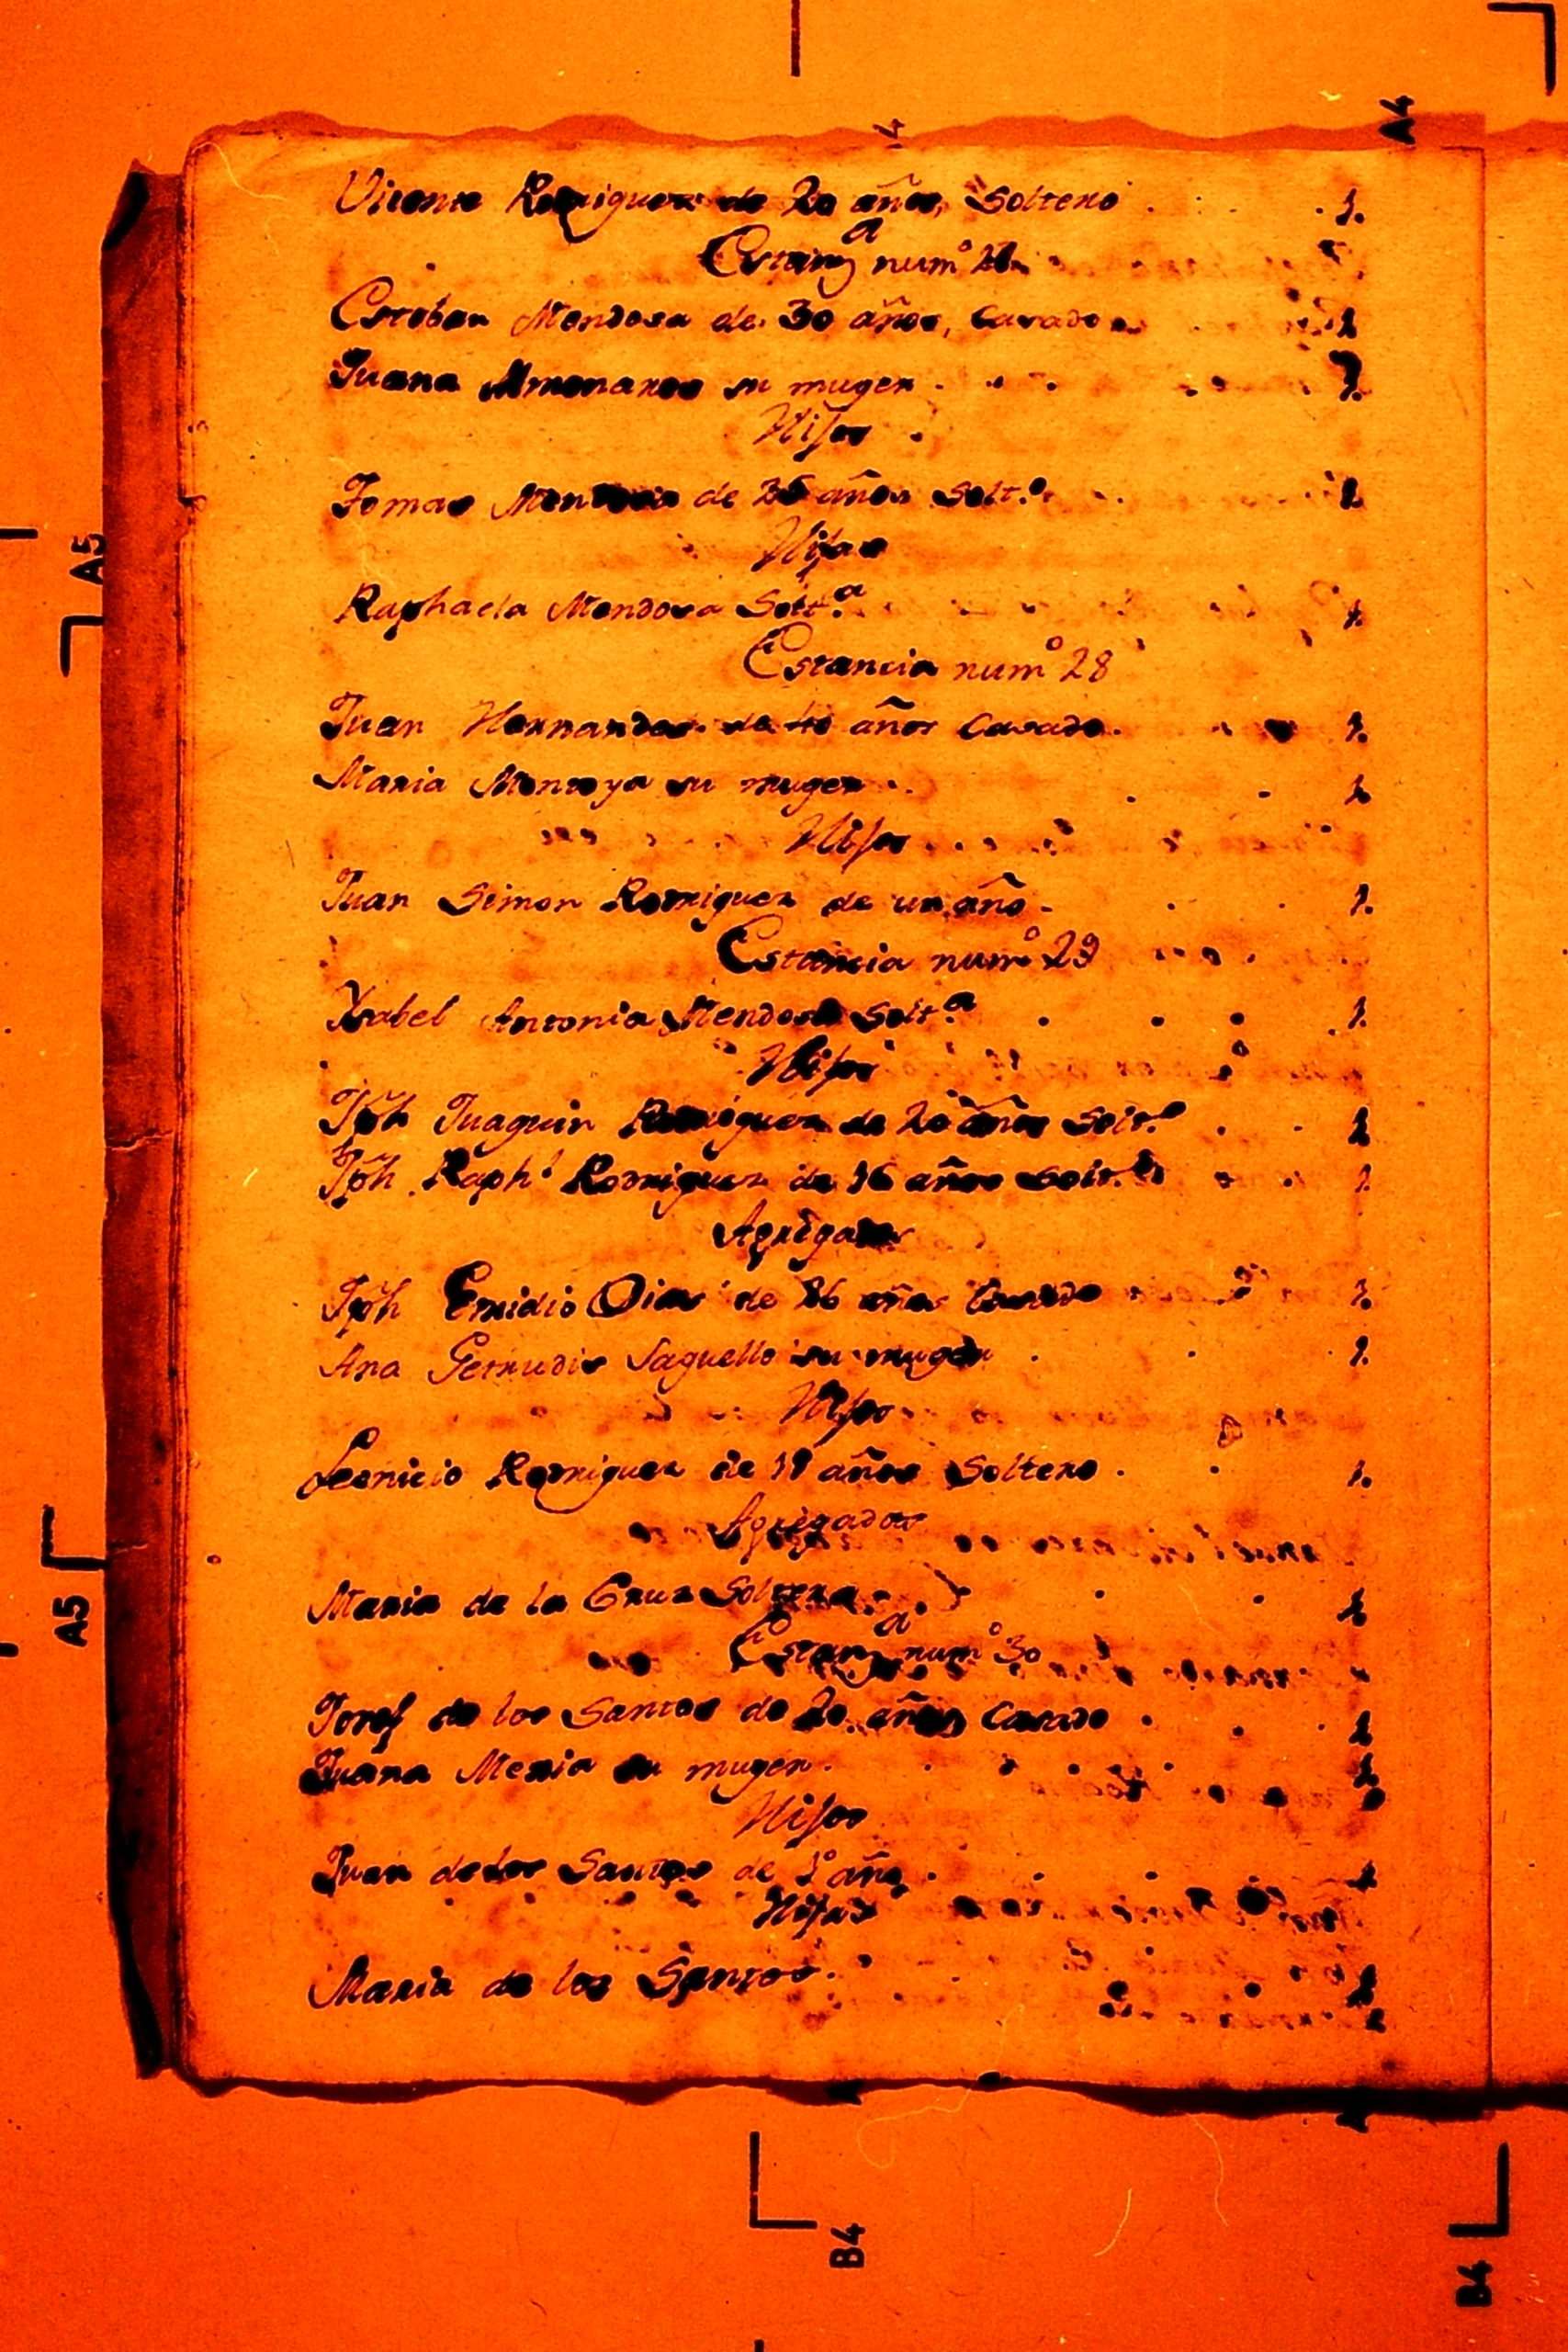 Vicente Rodriguez de 20 años, Soltero 1.
Estanza num.o
Esteban Mendosa de 30 años, Casado 1
Juana su muger 1.
Hijos
Tomas Mendosa de años Solt.o 1
Hijas
Raphaela Mendosa Solt.a 1.
Estancia num.o 28
Juan Hernandes de 40 años Casado. 1.
Maria Montoya su muger 1
Hijos
Juan Simon Rodriguez de un año 1.
Estancia num.o 29
Ysabel Antonia Mendosa Solt.a 1.
Hijos
Jph Juaquin Rodriguez de 20 años Solt.o 1
Jph Raph.l Rodriguez de 16 años Solt.o 1
Agregados
Jph Emidio Dias de años Casado 1.
Ana Getrudis Saguello su muger 1.
Hijos
Leonicio Rodriguez de años Soltero 1.
Agregados
Maria de la Cruz Soltera 1
Estanza num.o 30
Josef de los Santos de 20 años Casado 1
Juana Mexia su muger. 1
Hijos
Juan de los Santos de 1o año 1
Hijas
Maria de los Santos. 1
A4
A5
A5
B4
B4